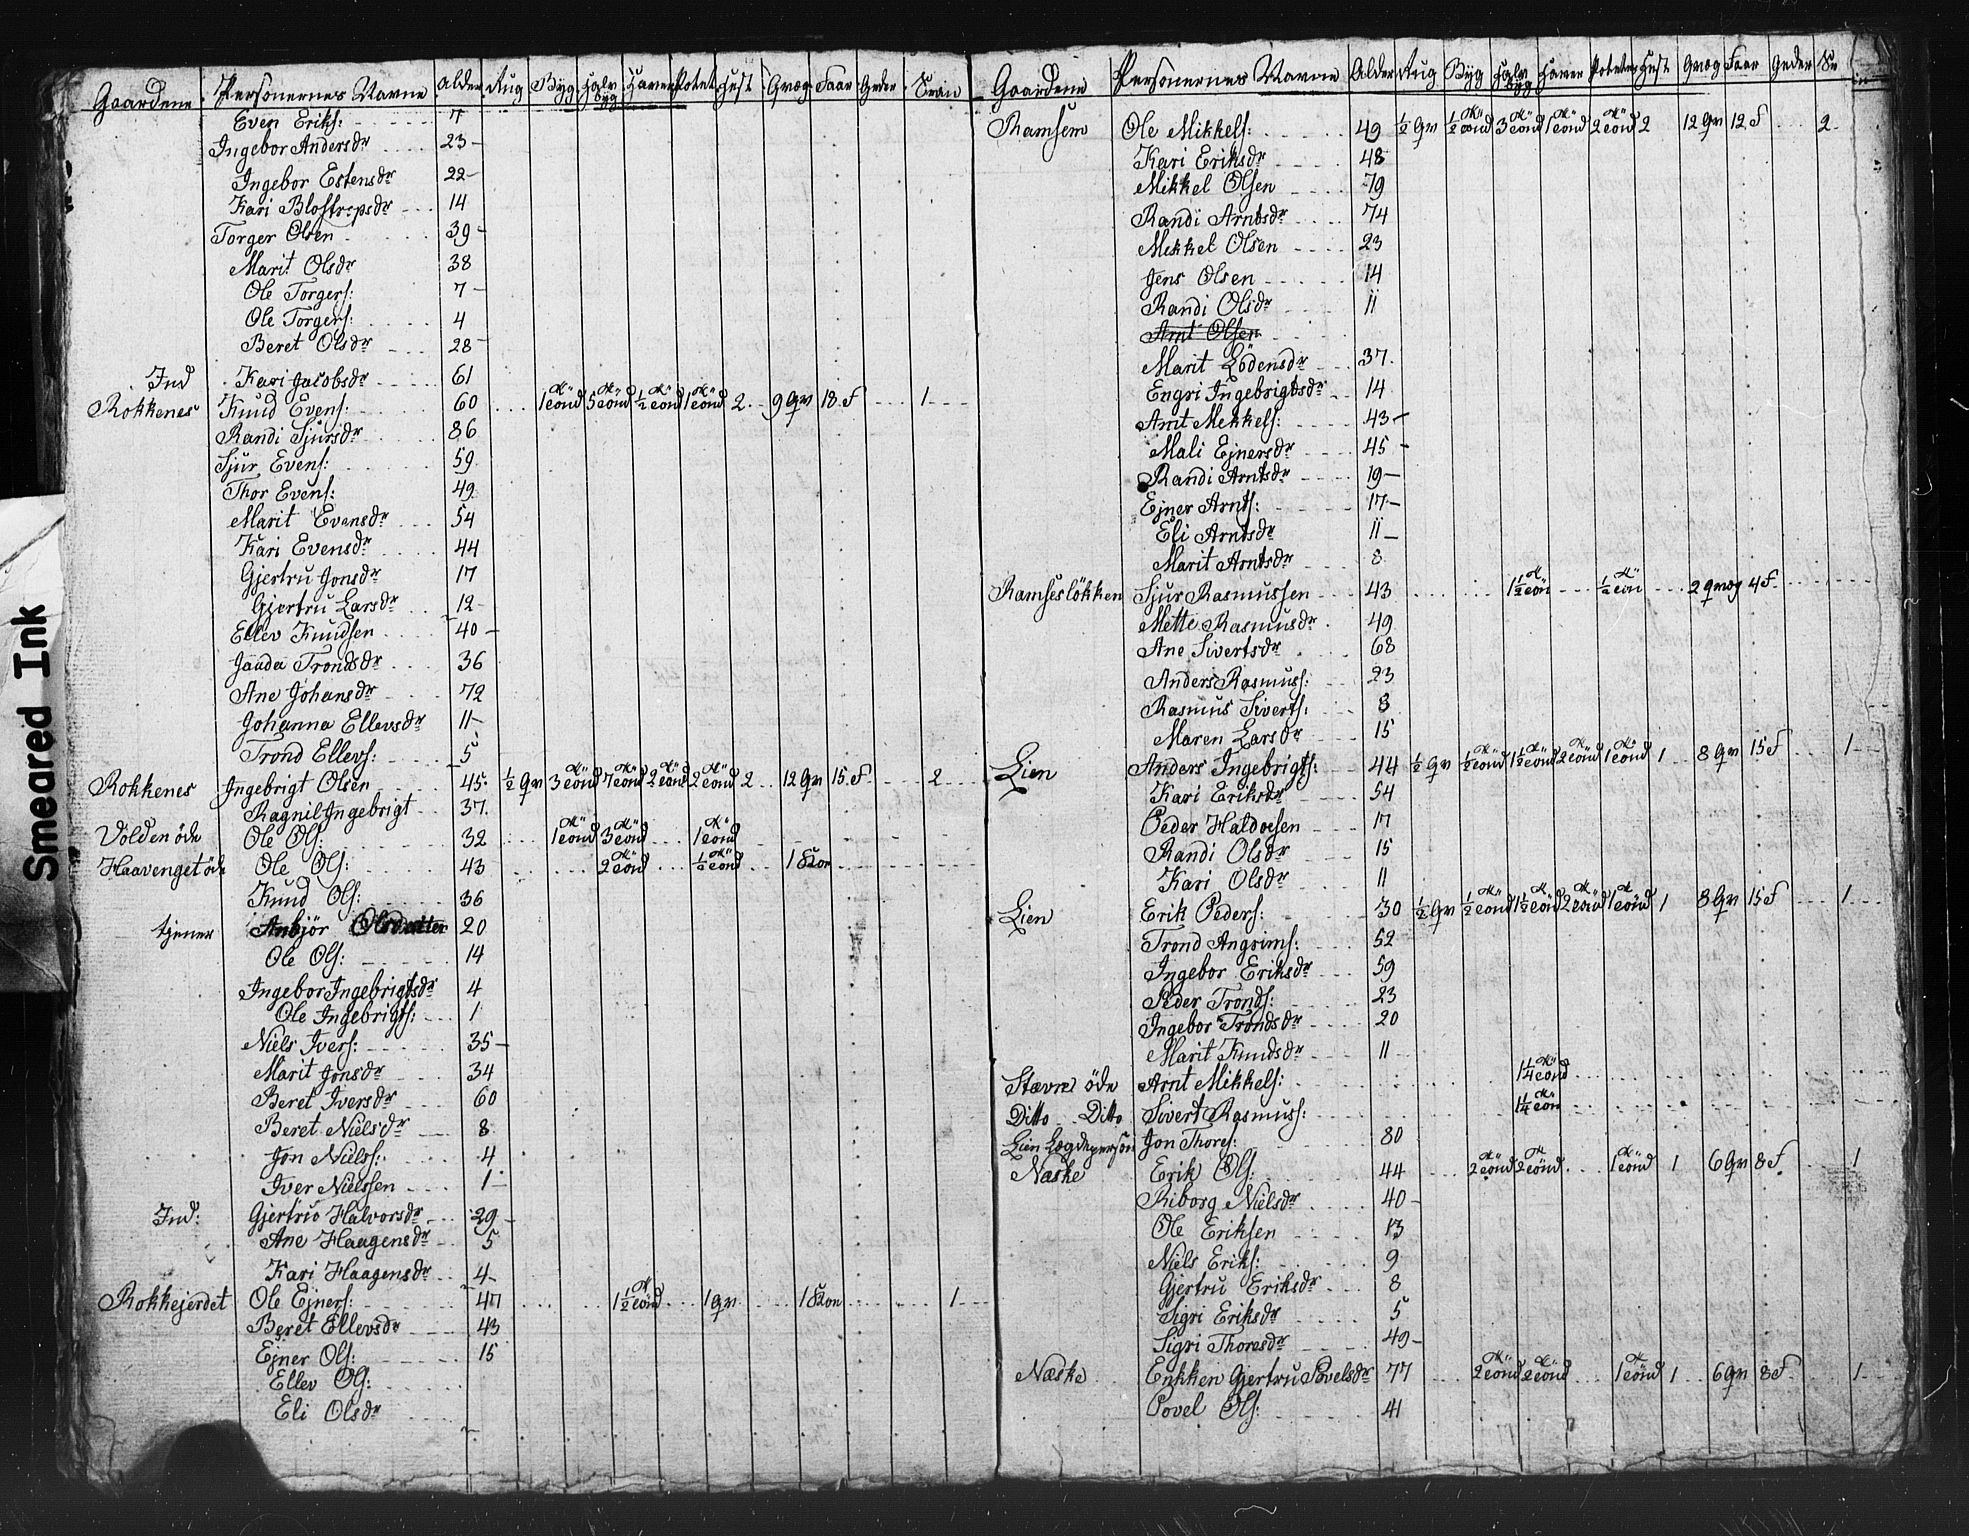 Gaardene Personernes Navne Alder Rug Byg Halv Byg Haver Potet Hest Qvæg Faar Geder Sviin
Even Eriks: 7
Ingebor Andersdr 23
Ingebor Estensdr 22
Kari 14
Torger Olsen 39
Marit Olsdr 38
Ole Torgers: 7
Ole Torgers: 4
Beret Olsdr 28
Ind Kari Jacobsdr 61
Rokkenes Knud Evens: 60 1 Tönd 5 Tönd ½ Tönd 1 Tönd 2 9 Qv 18 F 1
Randi Sjursdr 86
Sjur Evens: 59
Thor Evens: 49
Marit Evensdr 54
Kari Evensdr 44
Gjertru Jonsdr 17
Gjertru Larsdr 12
Ellev Knudsen 40
Trondsdr 36
Ane Johansdr 72
Johanna Ellevsdr 11
Trond Ellevs: 5
Rokkenes Ingebrigt Olsen 45 ½ Qv 3 Tönd 7 Tönd 2 Tönd 2 Tönd 2 12 Qv 15 F 2
Ragnil Ingebrigt 37
Volden öde Ole Ols: 32 1 Tönd 3 Tönd 1 Tönd
Haavenget öde Ole Ols: 43 2 Tönd ½ Tönd 1 Koe
Knud Ols: 36
tjener Anbjör Olsdatter 20
Ole Ols: 14
Ingebor Ingebrigtsdr 4
Ole Ingebrigts: 1
Niels Ivers: 35
Marit Jonsdr 34
Beret Iversdr 60
Beret Nielsdr 8
Jon Niels: 4
Iver Nielssen 1
Ind: Gjertru Halvorsdr 29
Ane Haagensdr 5
Kari Haagensdr 4
Rokkejerdet Ole Ejners: 47 1½ Tönd 1 Qv 1 Koe 1
Beret Ellevsdr 43
Ejner Ols: 15
Ellev Ols:
Eli Olsdr
Gaardene Personernes Navne Alder Rug Byg Halv Byg Haver Potetes Hest Qvæg Faar Geder Sv
Ramsem Ole Mikkels: 49 ½ Qv ½ Tönd 3 Tönd 1 Tönd 2 Tönd 2 12 Qv 12 F 2
Kari Eriksdr 48
Mikkel Olsen 79
Randi Arntsdr 74
Mikkel Olsen 23
Jens Olsen 14
Randi Olsdr 11
Arnt Olsen
Marit Lödensdr 37
Engri Ingebrigtsdr 14
Arnt Mekkels: 43
Mali Ejnersdr 45
Randi Arntsdr 19
Ejner Arnts: 17
Eli Arntsdr 11
Marit Arntsdr 8
Ramseslökken Sjur Rasmussen 43 1½ Tön ½ Tön 2 qvæg 4 F
Mette Rasmusdr 49
Ane Sivertsdr 68
Anders Rasmuss: 23
Rasmus Siverts: 8
Maren Larsdr 15
Lien Anders Ingebrigts: 44 ½ Qv ½ Tönd 1½ Tönd 2 Tönd 1 Tönd 1 8 Qv 15 F 1
Kari Eriksdr 54
Peder Haldoesen 17
Randi Olsdr 15
Kari Olsdr 11
Lien Erik Peders: 30 ½ Qv ½ Tönd 1½ Tönd 2 Tönd 1 Tönd 1 8 Qv 15 F 1
Trond Angrims: 52
Ingebor Eriksdr 59
Peder Tronds: 23
Ingebor Trondsdr 20
Marit Knudsdr 11
Stævne öde Arnt Mikkels: 1¼ Tönd
Ditto Ditto Sivert Rasmus: 1¼ Tön
Lien Lægdsperson Jon Thores: 80
Næske Erik Ols: 44 2 Tönd 2 Tönd 1 Tönd 1 6 Qv 8 F 1
Riborg Nielsdr 40
Ole Eriksen 13
Niels Eriks: 9
Gjertru Eriksdr 8
Sigri Eriksdr 5
Sigri Thoresdr 49
Næske Enkken Gjertru Povelsdr 77 2 Tönd 2 Tönd 1 Tönd 1 6 Qv 8 F 1
Povel Ols: 41
Smeared Ink